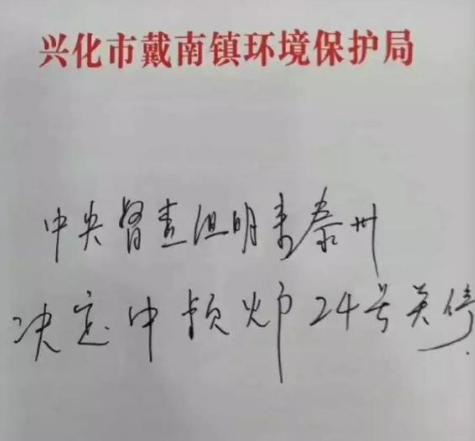 兴化市戴南镇环境保护局
中央督查组明来泰州
决定中频炉24号关停.